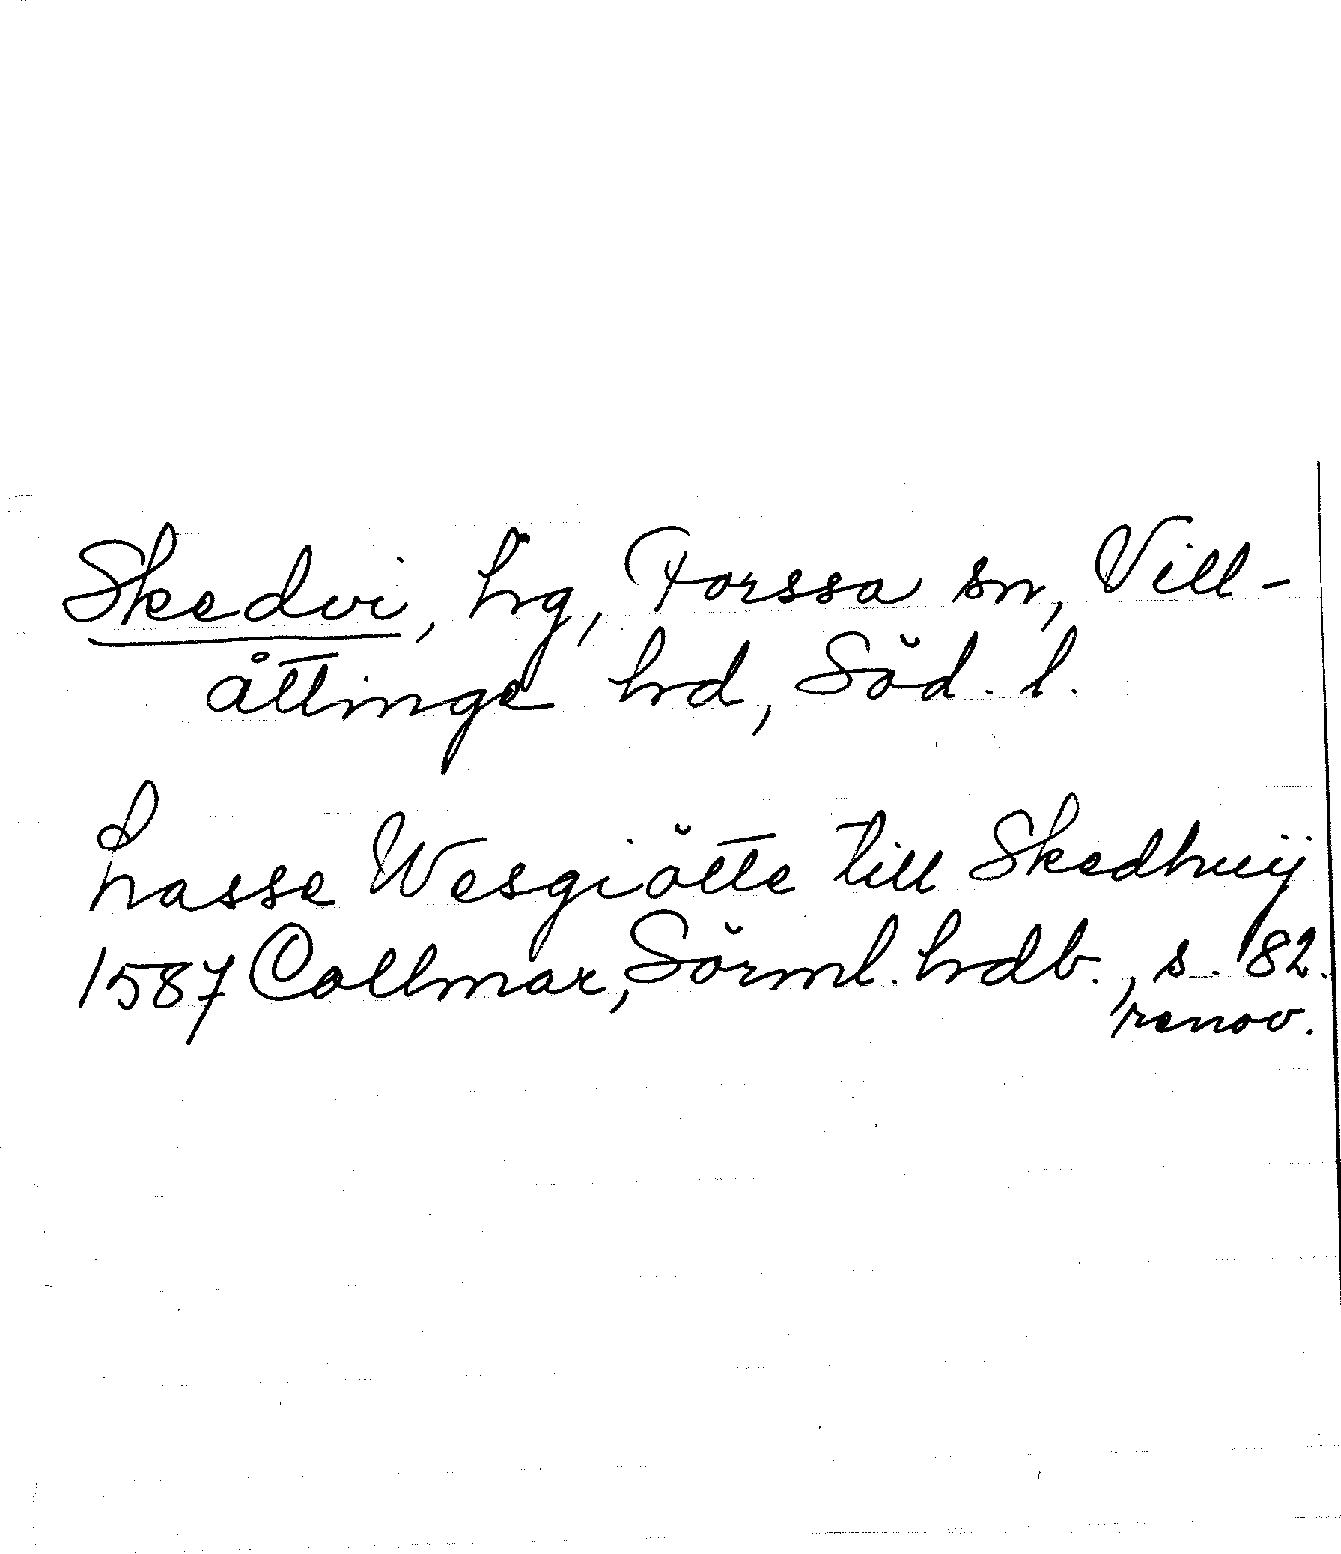 Skedvi, hg, Forssa sn, Vill-
åttinge hrd, Söd. l.
Lasse Wesgiötte till Skedhuij
1587 Collmar, Sörml. hrdb., s. 82.
renov.